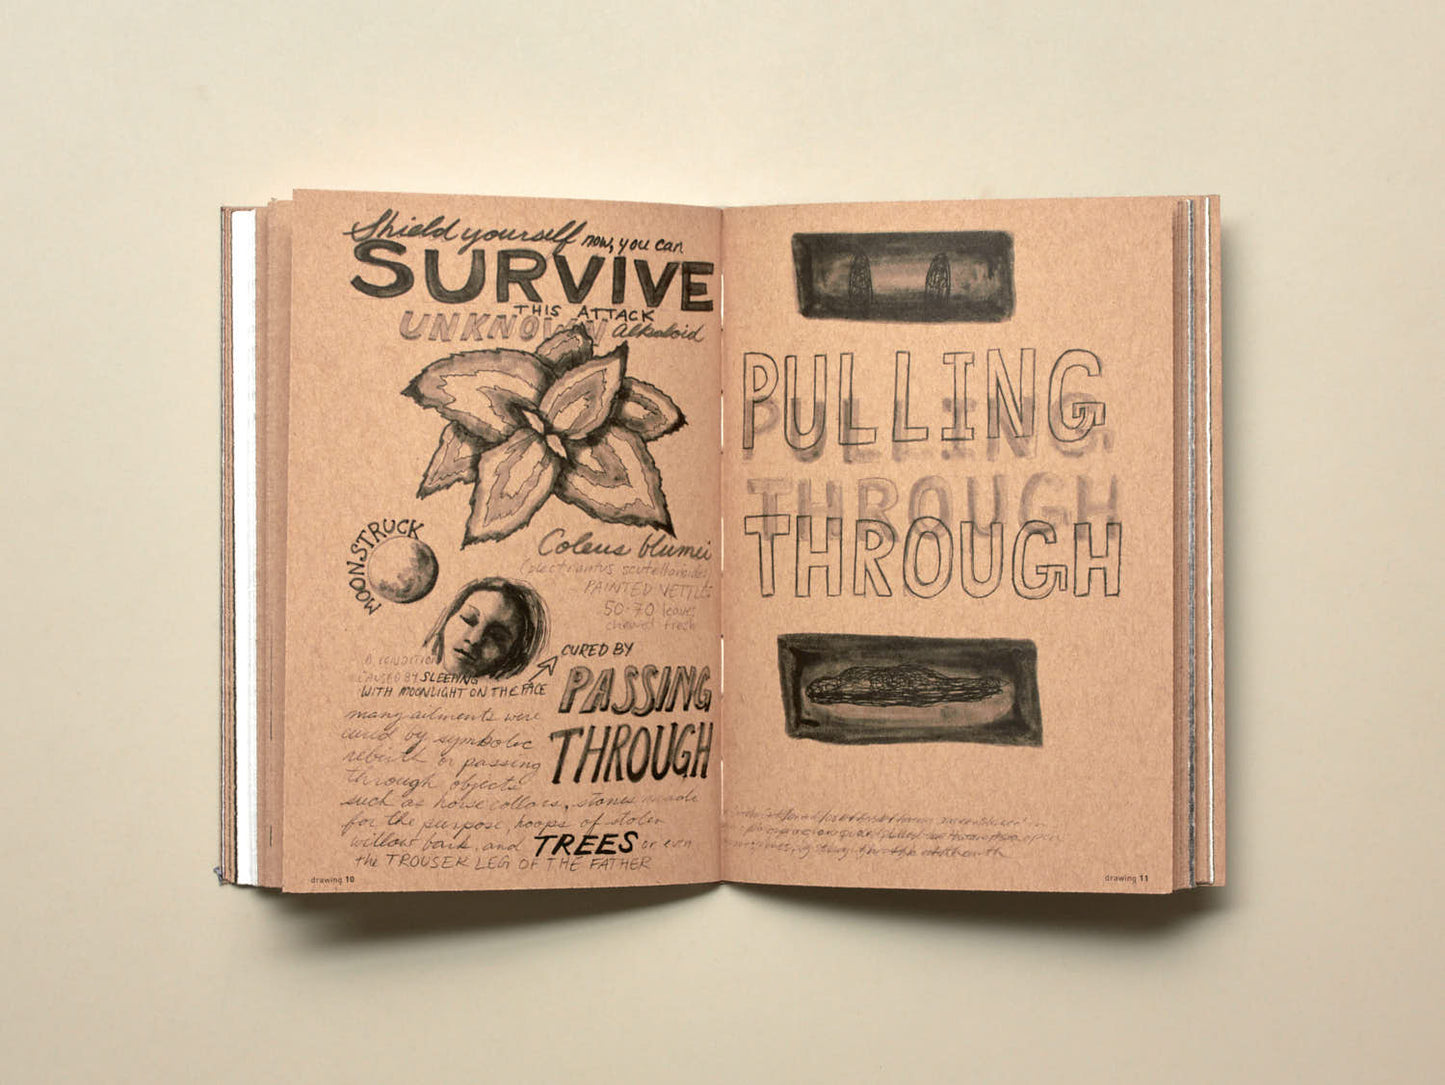 Shield yourself now, you can
SURVIVE
THIS ATTACK
UNKNOWN Alkaloid
Coleus blumei
(plectrantus scutellarioides)
PAINTED NETTLE
50-70 leaves
chewed fresh
MOONSTRUCK
A CONDITION
CAUSED BY SLEEPING
WITH MOONLIGHT ON THE FACE
CURED BY
PASSING
THROUGH
many ailments were
cured by symbolic
rebirth or passing
through objects
such as horse collars, stones made
for the purpose, hoops of stolen
willow bark, and TREES or even
the TROUSER LEG OF THE FATHER
drawing 10
PULLING
PULLING
THROUGH
THROUGH
drawing 11